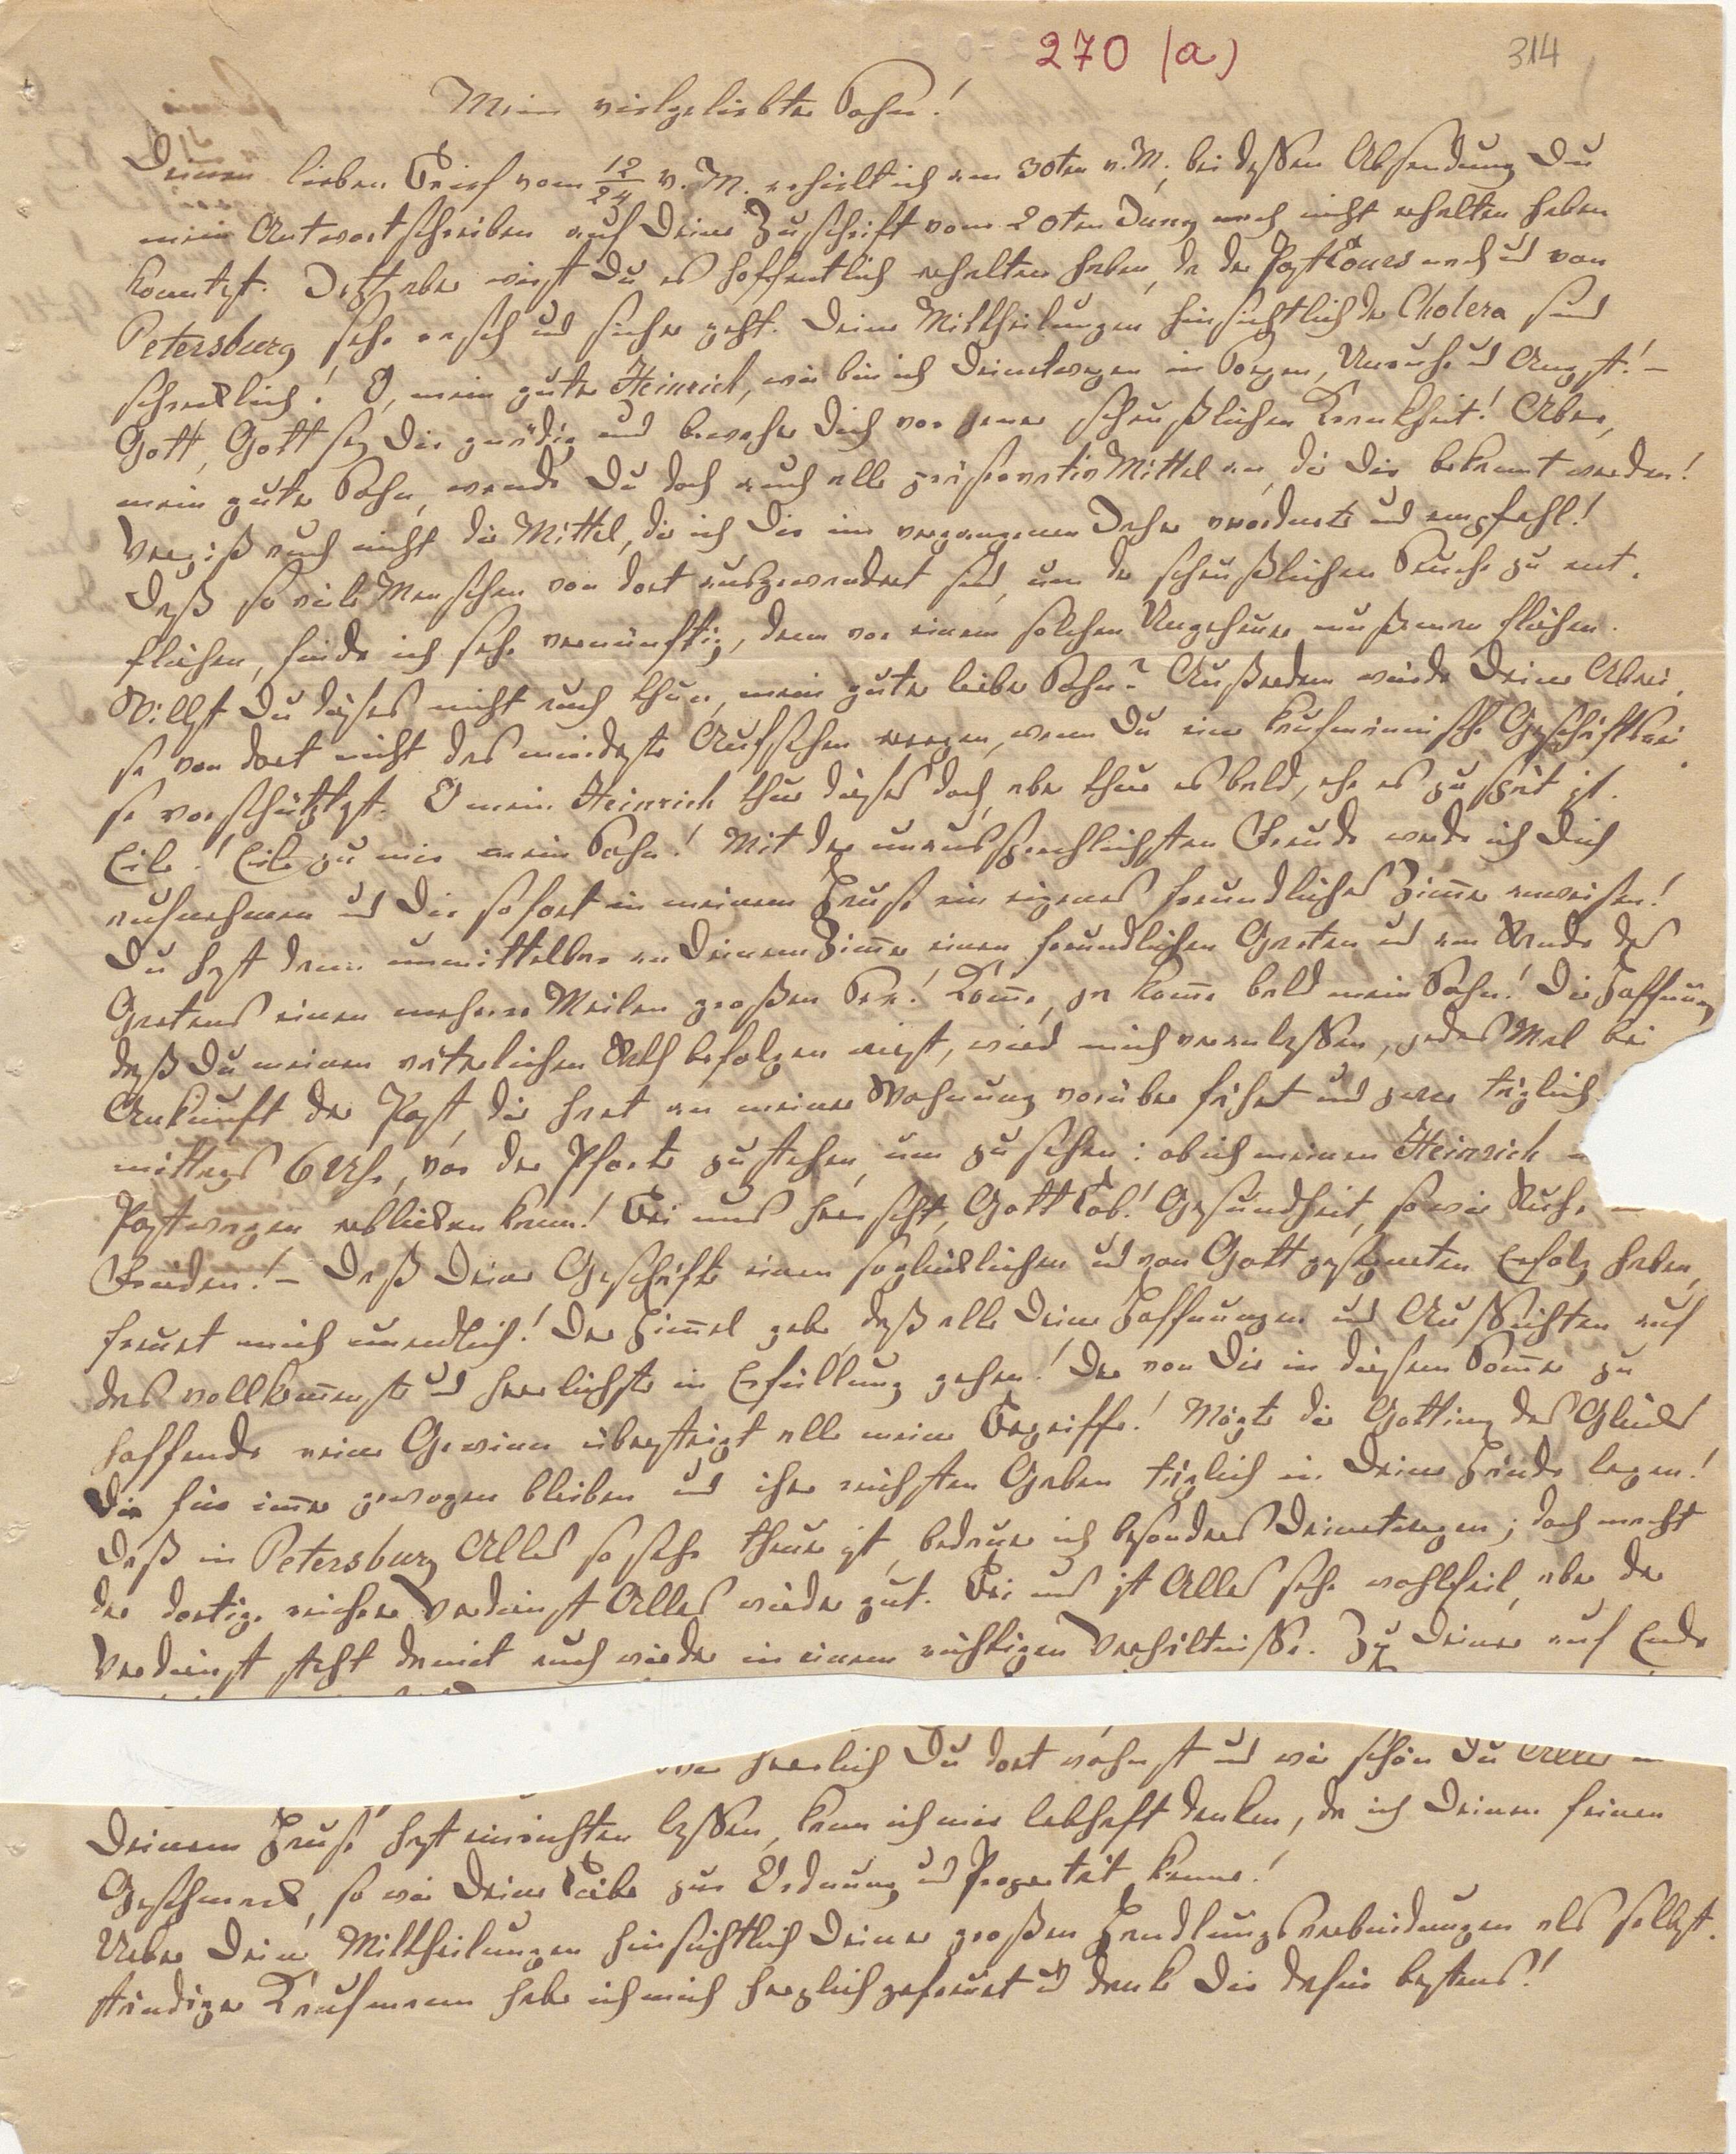 270 (a)
314
Mein vielgeliebter Sohn!
Deinen lieben Brief vom 12/24 v. M. erhielt ich am 30ten v. M., bei deßen Absendung Du
mein Antwortschreiben auf Deine Zuschrift vom 20ten Juny noch nicht erhalten haben
konntest. Jetzt aber wirst Du es hoffentlich erhalten haben, da der Post Cours nach und von
Petersburg sehr rasch und sicher geht. Deine Mittheilungen hinsichtlich der Cholera sind
schrecklich! O, mein guter Heinrich, wie bin ich Deinetwegen in Sorgen, Unruhe und Angst! –
Gott, Gott sey Dir gnädig und bewahre Dich vor jener scheußlichen Krankheit! Aber,
mein guter Sohn, wende Du doch auch alle präservativ Mittel an, die Dir bekannt werden!
Vergiß auch nicht die Mittel, die ich Dir im vergangenen Jahre verordnete und empfahl!
Daß so viele Menschen von dort ausgewandert sind, um der scheußlichen Seuche zu ent-
fliehen, finde ich sehr vernünftig, denn vor einem solchen Ungeheuer muß man fliehen.
Willst Du dieses nicht auch thun, mein guter lieber Sohn? Außerdem würde Deine Abrei-
se von dort nicht das mindeste Aufsehen erregen, wenn Du eine kaufmännische Geschäftsrei-
se vorschütztest. O mein Heinrich thue dieses doch, aber thue es bald, ehe es zu spät ist.
Eile! Eile zu mir mein Sohn! Mit der unaussprechlichsten Freude werde ich Dich
aufnehmen und Dir sofort in meinem Hause ein eigenes freundliches Zimmer anweisen!
Du hast dann unmittelbar an Deinem Zimmer einen freundlichen Garten und am Ende des
Gartens einen mehrere Meilen großen See! Komme, ja komme bald mein Sohn! Die Hoffnung
daß Du meinen väterlichen Rath befolgen wirst, wird mich veranlassen, jedes Mal bei
Ankunft der Post, die hart an meiner Wohnung vorüber fährt und zwar täglich
mittags 6 Uhr, vor der Pforte zu stehen, um zu sehen: ob ich meinen Heinrich
Postwagen erblicken kann! Bei uns herrscht, Gott Lob! Gesundheit, so wie Ruhe
Frieden! – Daß Deine Geschäfte einen so glücklichen und von Gott gesegneten Erfolg haben,
freuet mich unendlich! Der Himmel gebe, daß alle Deine Hoffnungen und Aussichten auf
das vollkommenste und herrlichste in Erfüllung gehen! Der von Dir in diesem Sommer zu
hoffende reine Gewinn übersteigt alle meine Begriffe! Mögte die Göttin des Glücks
Dir für immer gewogen bleiben und ihre reichsten Gaben täglich in Deine Hände legen!
Daß in Petersburg Alles so sehr theuer ist, bedaure ich besonders Deinetwegen; doch macht
der dortige reichere Verdienst Alles wieder gut. Bei uns ist Alles sehr wohlfeil, aber der
Verdienst steht damit auch wieder in einem richtigen Verhältnisse. Zu Deiner auf Ende
herrlich Du dort wohnst und wie schön Du Alles
Deinem Hause hast einrichten laßen, kann ich mir lebhaft denken, da ich Deinen feinen
Geschmack, so wie Deine Liebe zur Ordnung und Propertät kenne!
Ueber Deine Mittheilungen hinsichtlich Deiner großen Handlungsverbindungen als selbst-
ständiger Kaufmann habe ich mich herzlich gefreuet und danke Dir dafür bestens!